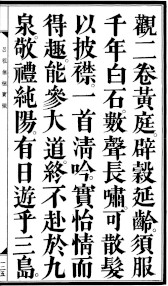 觀二卷黃庭辟穀延齡須服
千年白石數聲長嘯可散髮
以披襟一首清吟寶怡情而
得趣能參大道終不赴於九
泉敬禮純陽有日遊乎三島